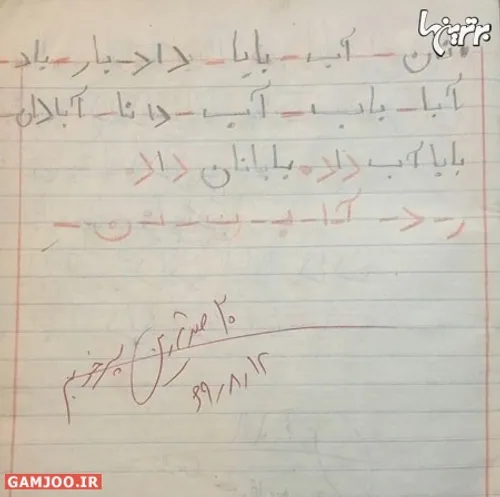 برترین‌ها
نان - آب - بابا - داد - بار - باد
آبا - باب - آب - دانا - آبادان
بابا آب داد. بابا نان داد
ر - د - آ ا - ب
۲۰ صد آفرین
۶۹/۸/۱۲
GAMJOO.IR